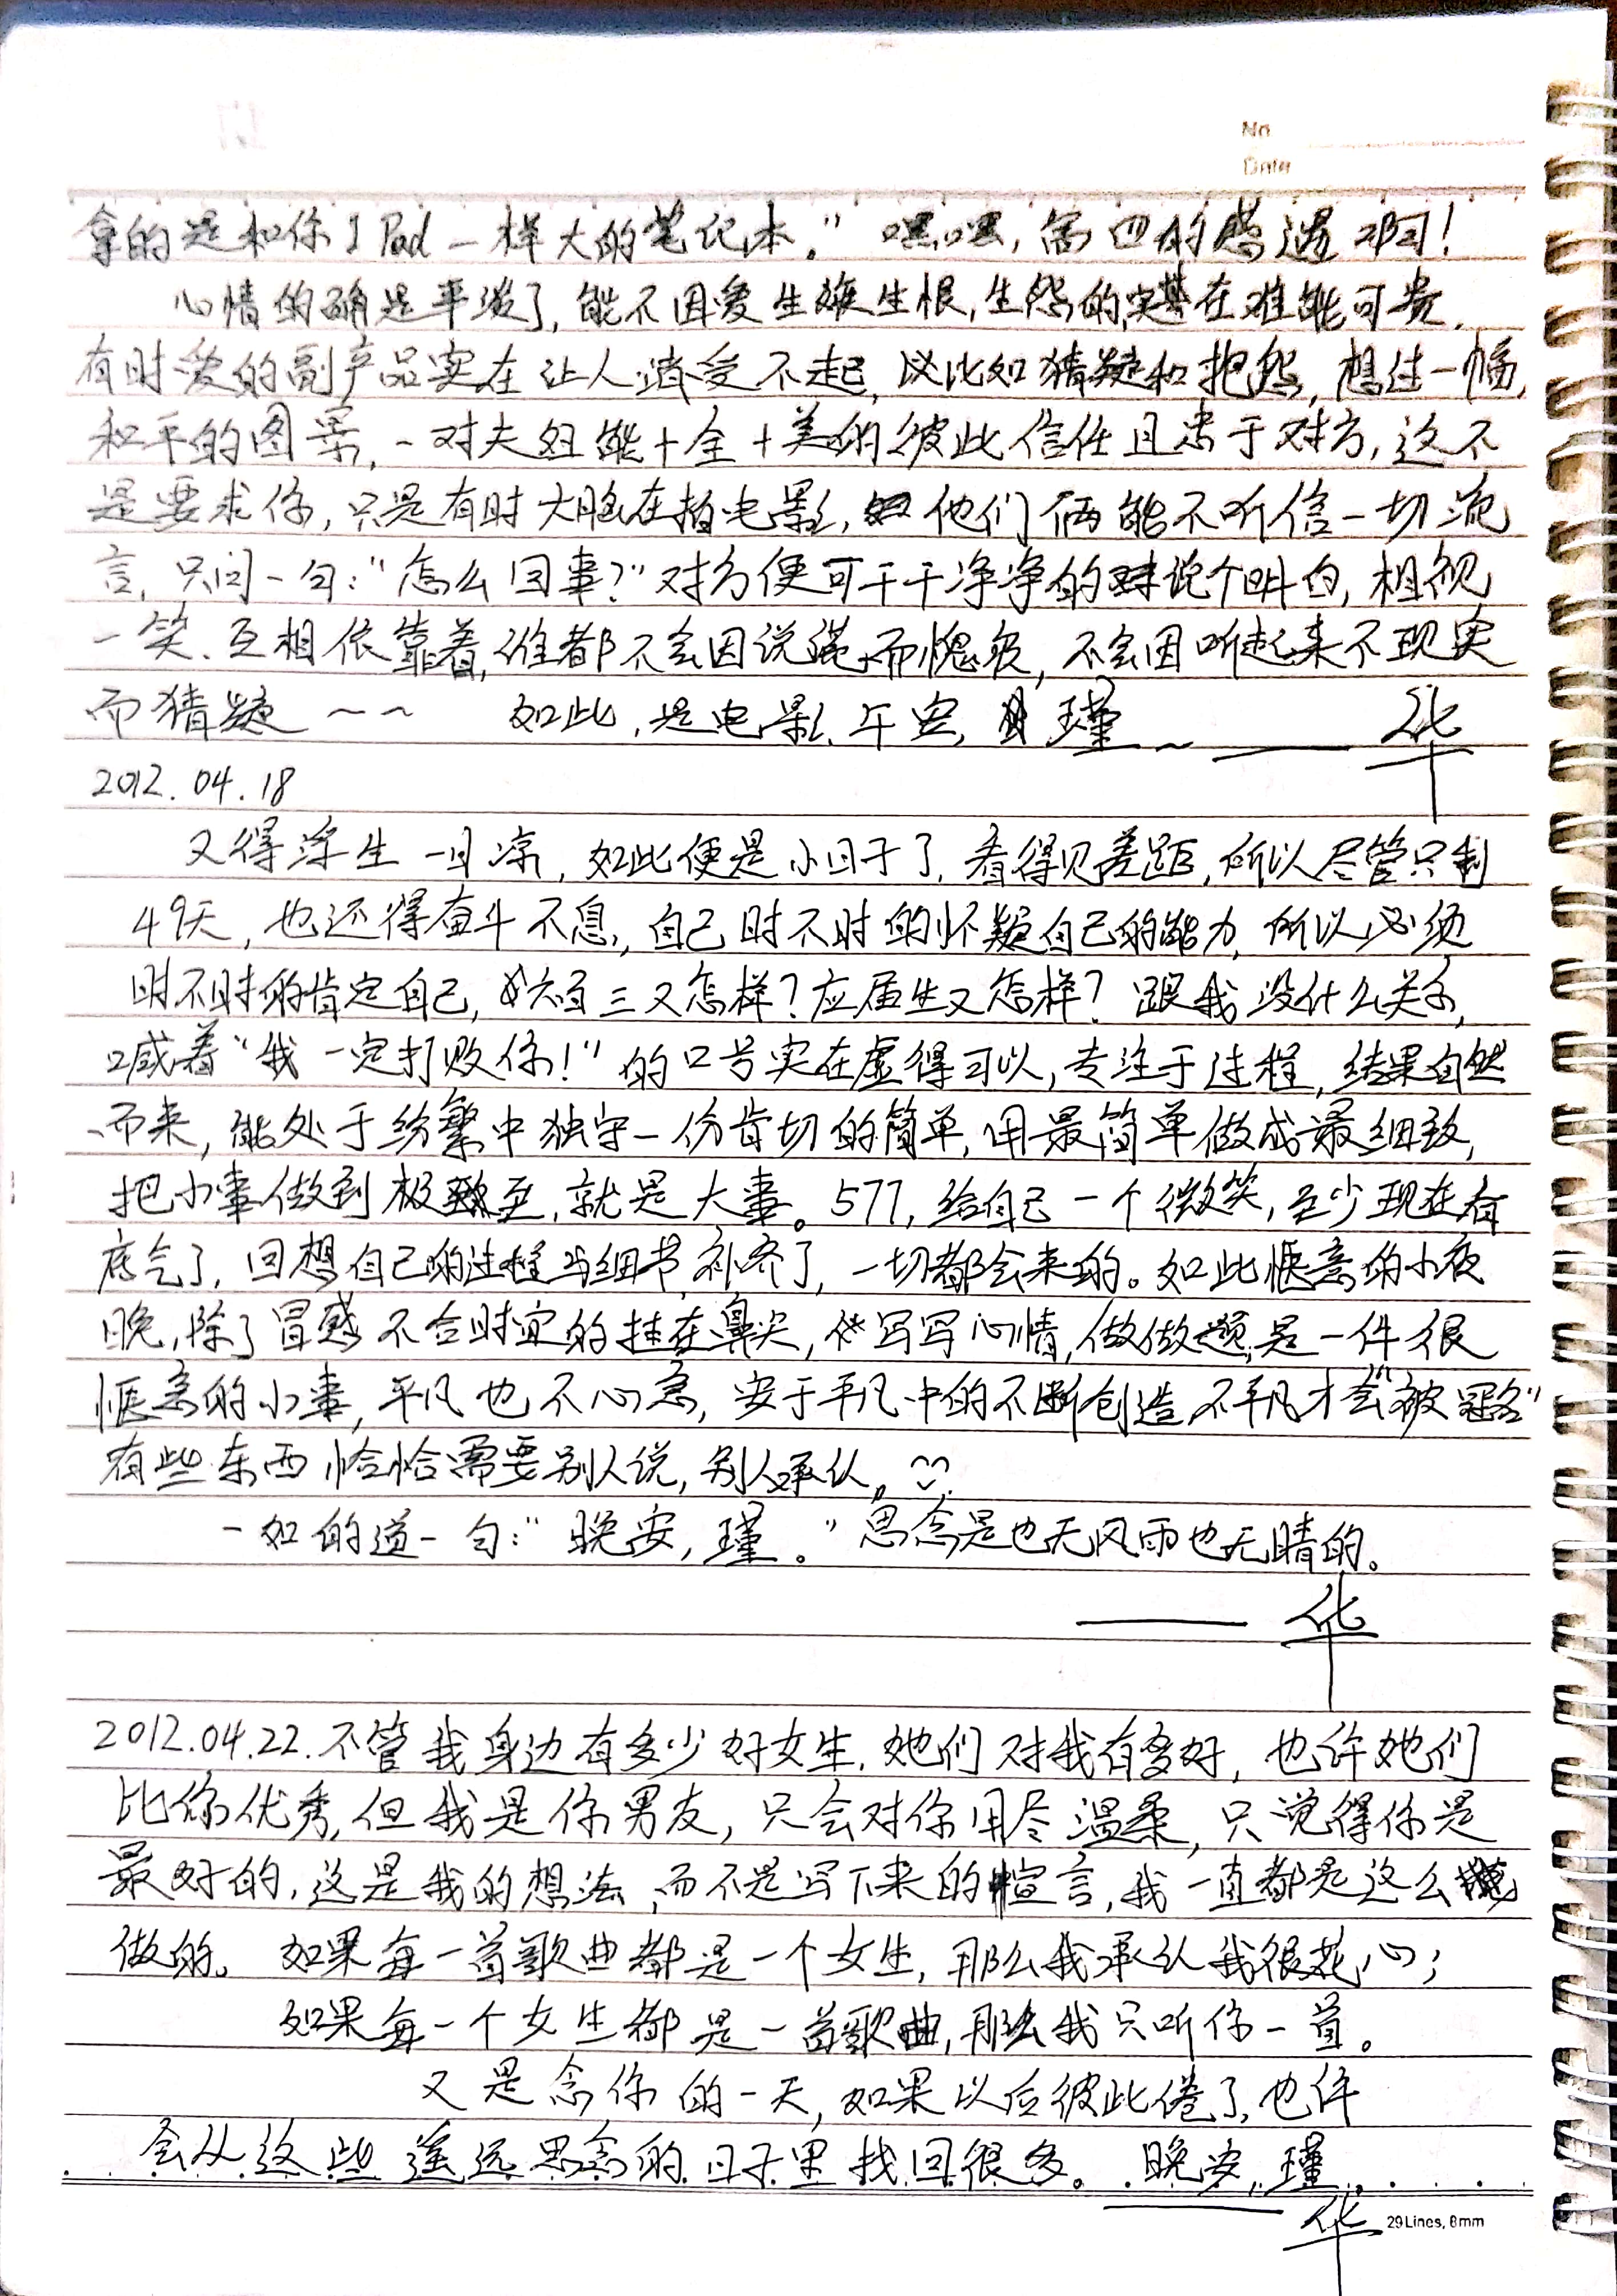 No
Date
拿的是和你I Pad一样大的笔记本。”嘿嘿,
心情的确是平淡了,能不因爱生嫌生恨,生怨的,实在难能可贵,
有时爱的副产品实在让人消受不起,比如猜疑和抱怨,想过一幅
和平的图景,一对夫妇能十全十美的彼此信任且忠于对方,这不
是要求你,只是有时大脑在拍电影,他们俩能不听信一切流
言,只问一句:“怎么回事?”对方便可干干净净的说个明白,相视
一笑、互相依靠着,谁都不会因说谎而愧疚,不会因听起来不现实
而猜疑~~ 如此,是电影,午安,瑾~ ——华
2012.04.18
又得浮生一日凉,如此便是小日子了,看得见差距,所以尽管只剩
49天,也还得奋斗不息,自己时不时的怀疑自己的能力,所以必须
时不时的肯定自己,高三又怎样?应届生又怎样?跟我没什么关系,
喊着“我一定打败你!”的口号实在虚得可以,专注于过程,结果自然
而来,能处于纷繁中独守一份肯切的简单,用最简单做成最细致,
把小事做到极至,就是大事。577,给自己一个微笑,至少现在有
底气了,回想自己的过程与细节,补齐了,一切都会来的。如此惬意的小夜
晚,除了冒感不合时宜的挂在鼻尖,写写心情,做做题,是一件很
惬意的小事,平凡也不心急,安于平凡中的不断创造,不平凡才会“被冠名”
有些东西恰恰需要别人说,别人承认。
一如的道一句:“晚安,瑾。”思念是也无风雨也无晴的。
——华
2012.04.22.不管我身边有多少好女生,她们对我有多好,也许她们
比你优秀,但我是你男友,只会对你用尽温柔,只觉得你是
最好的,这是我的想法,而不是写下来的宣言,我一直都是这么
做的。如果每一首歌曲都是一个女生,那么我承认我很花心;
如果每一个女生都是一首歌曲,那么我只听你一首。
又是念你的一天,如果以后彼此倦了,也许
会从这些遥远思念的日子里找回很多。晚安,瑾,
——华
29Lines, 8mm